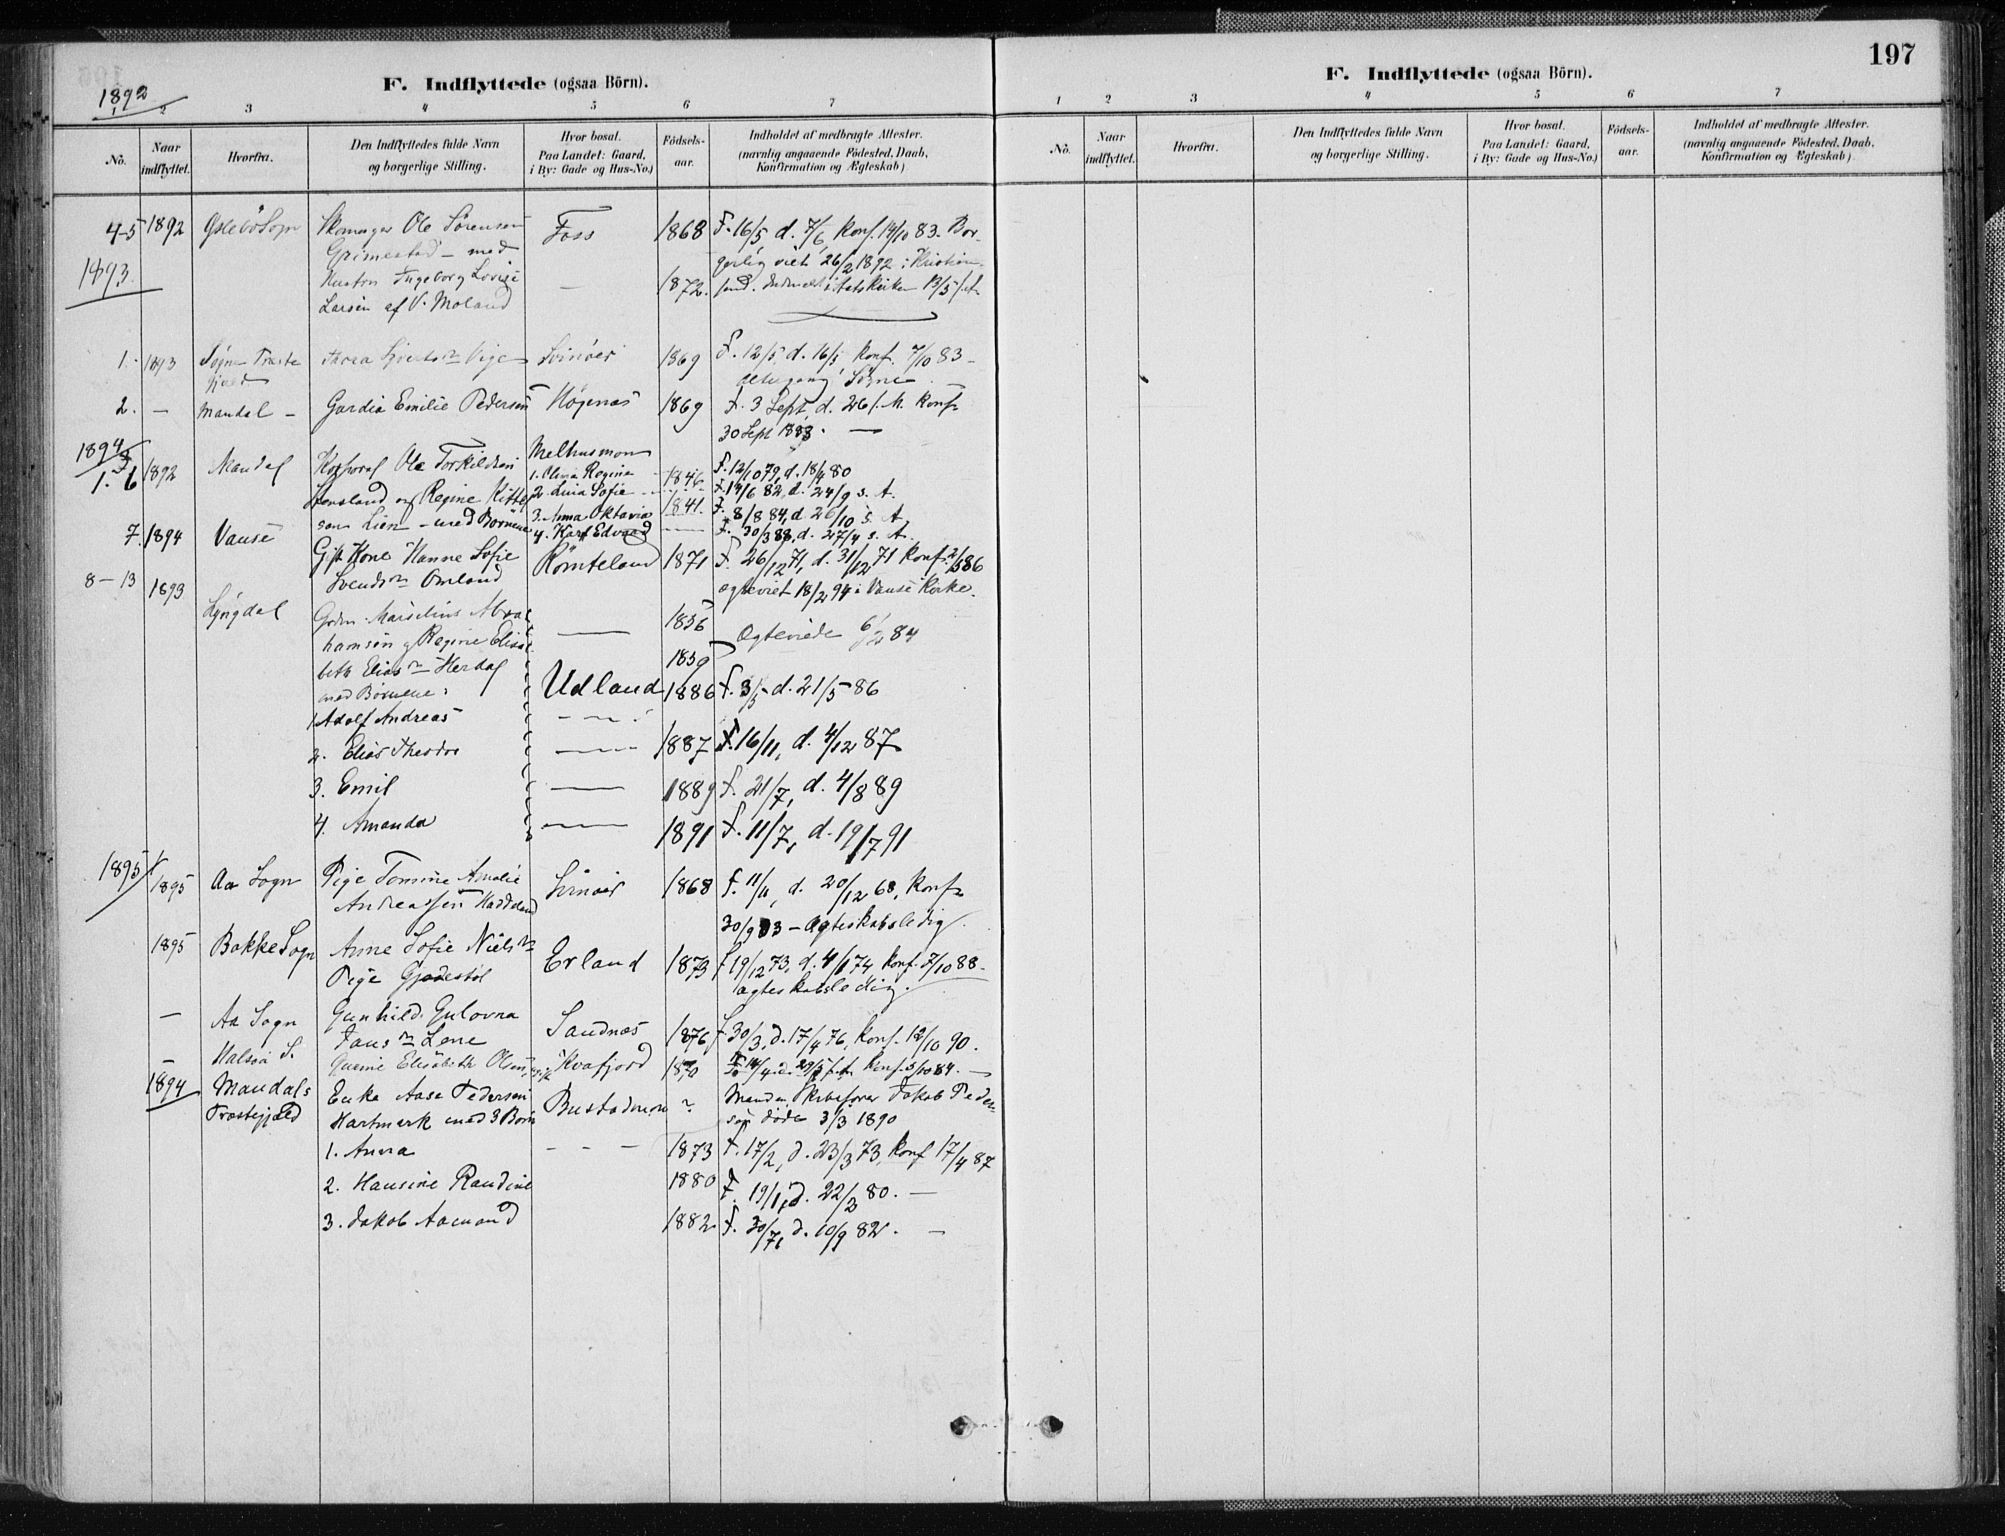 197
F. Indflyttede (ogsaa Börn).
1892
1 2 3 4 5 6 7
No.
Naar indflyttet.
Hvorfra.
Den Indflyttedes fulde Navn
og borgerlige Stilling.
Hvor bosat.
Paa Landet: Gaard,
i By: Gade og Hus-No.)
Födsels-
aar.
Indholdet af medbragte Attester.
(navnlig angaaende Födested, Daab,
Konfirmation og Ægteskab)
4-5 1892 Sogn Skomager Ole Sörensen Foss 1868 F. 16/5 d. 7/6 Konf. 14/10 83. Bor-
Grimestad - med gerlig viet 26/2 1892 i Kristian-
1893. Hustru Ingeborg Lovise — 1872. sand. 13/5
Larsen af V. Moland
1. 1893 Sögne Præste Thora Vige Svinöer 1869 F. 12/5 d. 16/5 Konf. 7/10 83 -
gjæld Sögne
2. — Mandal - Gardia Emilie Pedersen Högenæs 1869 F. 3 Sept. d. 26 s. M. Konf.
30 Sept 1883. —
1894 Melhusmon
1. 6 1892 Mandal Korporal Ole Torkildsen 1. Olivia Regine 1846 F. 12/10 79, d. 18/4 80
og Regine Kittel 2. Lina Sofie 1841. F. 14/6 82, d. 24/9 s. A.
sen Lien - med Börnene 3. Anna Oktavia F. 8/8 84, d. 26/10 s. A.
4. Karl Edvard — F. 30/3 88, d. 27/4 s. A.
7. 1894 Vanse Gift Kone Hanne Sofie Römteland 1871 F. 26/12 71, d. 31/12 71 Konf. 2/5 86
Svendsn Omland ægteviet 18/2 94 i Vanse Kirke.
8-13 1893 Lyngdal Gdm. Marselius Abra — 1856 Ægteviede 6/2 84
hamsen og Regine Elisa 1859
beth Eliasn Herdal
med Börnene: Udland 1886 F. 3/5 d. 21/5 86
1 Adolf Andreas — — "
2. Elias Theodor — 1887 F. 16/11, d. 4/12 87
3. Emil — 1889 F. 21/7, d. 4/8 89
4. Amanda — 1891 F. 11/7, d. 19/7 91
1895 1/1895 Aa Sogn Pige Tomine Amalie Svinöer 1868 F. 11/11, d. 20/12 68, Konf.
Andreassen Haddeland 30/9 83 - Ægteskabsledig.
1895 Bakke Sogn Anne Sofie Nielsn Erland 1873 F 19/12 73, d. 4/1 74, Konf. 7/10 88.
Pige Gjedestöl ægteskabsledig.
— Aa Sogn Gunhild Gulovna Sandnæs 1876 F. 30/3, d. 17/4 76, Konf. 12/10 90.
Jansn Lene
— Halsaa S. Gusine Elisabeth Olsen, Kvafjord 1870 F. 14/4 d. 29/5 Konf. 5/10 84. —
1894 Mandals Enke Aase Pedersen Bustadmon ? Manden, Jakob Peder-
Præstegjæld Hartmark med 3 Börn sen döde 3/3 1890
1. Anna - - - 1873 F. 17/2, d. 23/3 73, Konf 17/4 87
2. Hansine Randine 1880 F. 19/1, d. 22/2 80. —
3. Jakob Aamand 1882 F. 30/7, d. 10/9 82. —
F. Indflyttede (ogsaa Börn).
1 2 3 4 5 6 7
No.
Naar
indflyttet.
Hvorfra.
Den Indflyttedes fulde Navn
og borgerlige Stilling.
Hvor bosat.
Paa Landet: Gaard,
i By: Gade og Hus-No.)
Födsels-
aar.
Indholdet af medbragte Attester.
(navnlig angaaende Födested, Daab,
Konfirmation og Ægteskab)